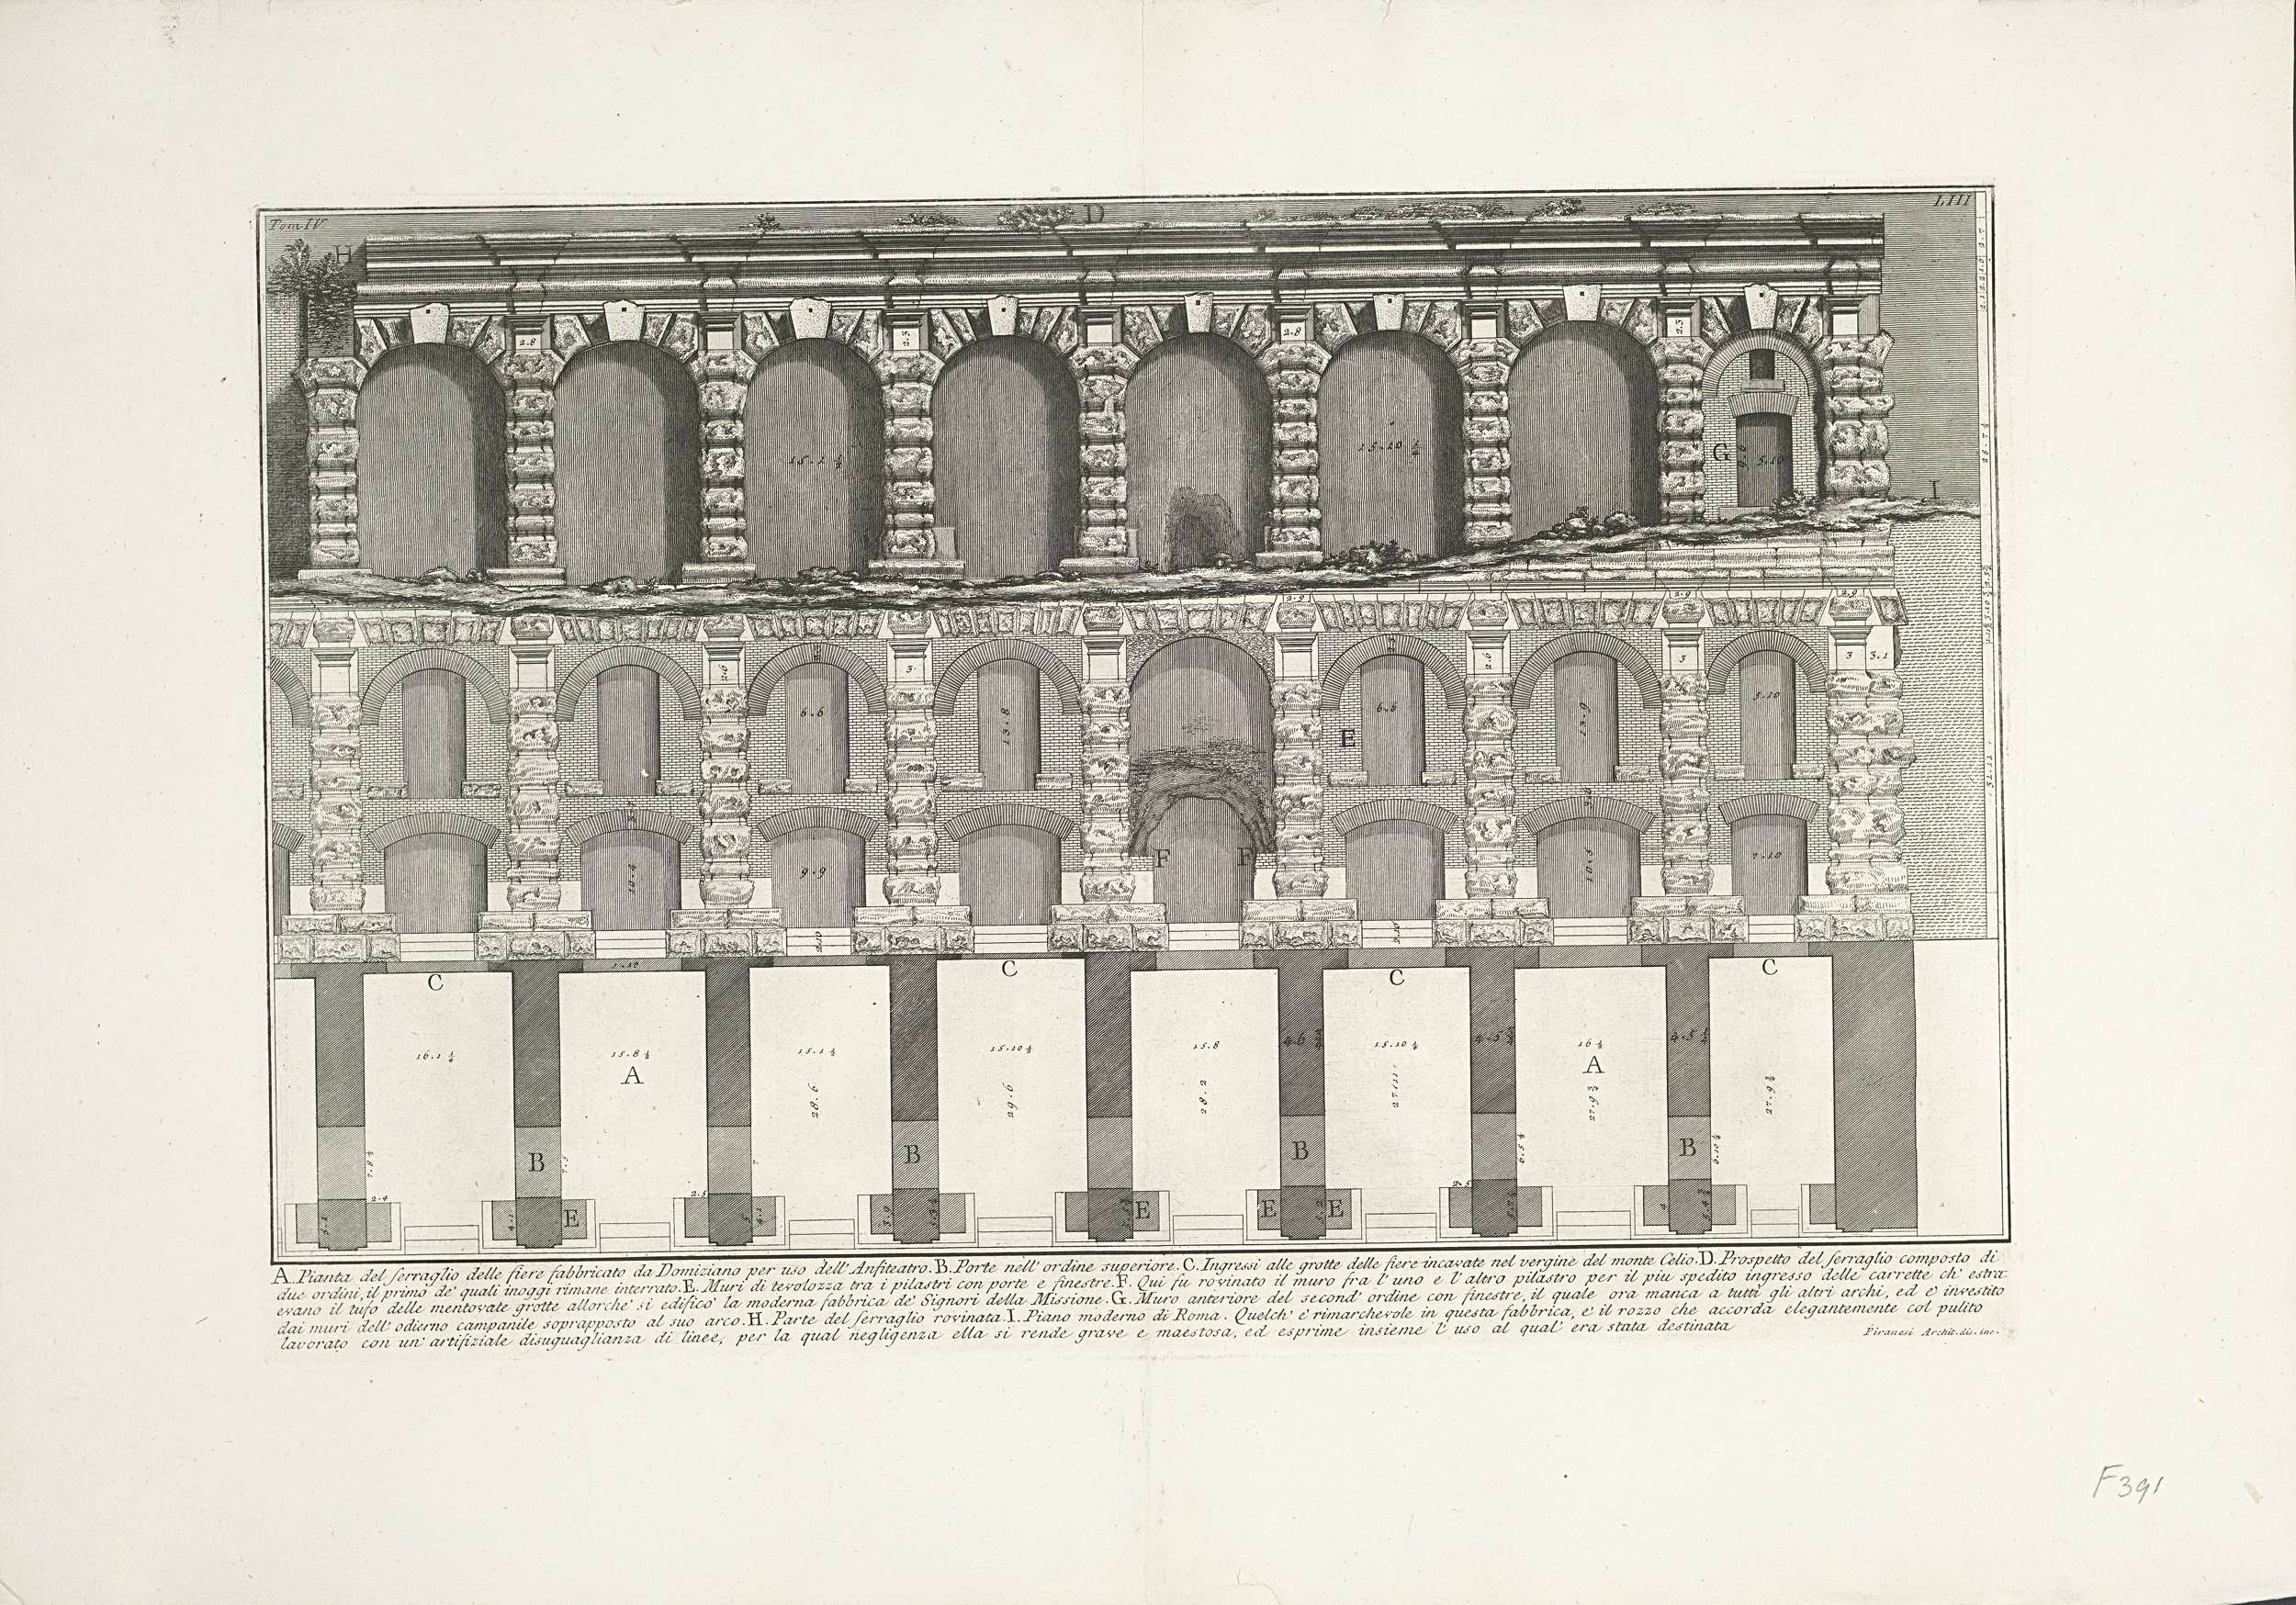 Tom. IV.
LIII
D
H
2.8
2.5
2.8
2.5
15.1 ½
15.10 ¼
G
5.10
I
2.9
2.9
2.9
2.6
3
2.6
3
3
3.1
6.6
13.8
E
6.6
13.9
5.10
F
F
10.4
9.9
10.5
7.10
2.10
2.10
1.10
C
C
C
C
16.1 ¼
15.8 ½
15.1 ½
15.10 ½
15.8
4.6
15.10 ¼
4.5
16 ½
4.5
A
A
28.6
29.6
28.2
27.9 ¾
27.9 ½
B
B
B
B
7.8 ½
7.5
7
6.5 ½
6.10 ½
2.4
2.5
2.5
E
E
E
E
4.1
4.1
3.9
4
A. Pianta del serraglio delle fiere fabbricato da Domiziano per uso dell'Anfiteatro. B. Porte nell'ordine superiore. C. Ingressi alle grotte delle fiere incavate nel vergine del monte Celio. D. Prospetto del serraglio composto di
due ordini, il primo de' quali inoggi rimane interrato. E. Muri di tevolozza tra i pilastri con porte e finestre. F. Qui fu rovinato il muro fra l'uno e l'altro pilastro per il piu spedito ingresso delle carrette ch' estra-
evano il tufo delle mentovate grotte allorche' si edifico' la moderna fabbrica de' Signori della Missione. G. Muro anteriore del second' ordine con finestre, il quale ora manca a tutti gli altri archi, ed e' investito
dai muri dell' odierno campanile soprapposto al suo arco. H. Parte del serraglio rovinata. I. Piano moderno di Roma. Quelch' e' rimarchevole in questa fabbrica, e' il rozzo che accorda elegantemente col pulito
lavorato con un' artifiziale disuguaglianza di linee, per la qual negligenza ella si rende grave e maestosa, ed esprime insieme l' uso al qual' era stata destinata
Piranesi Archit. dis. inc.
F391